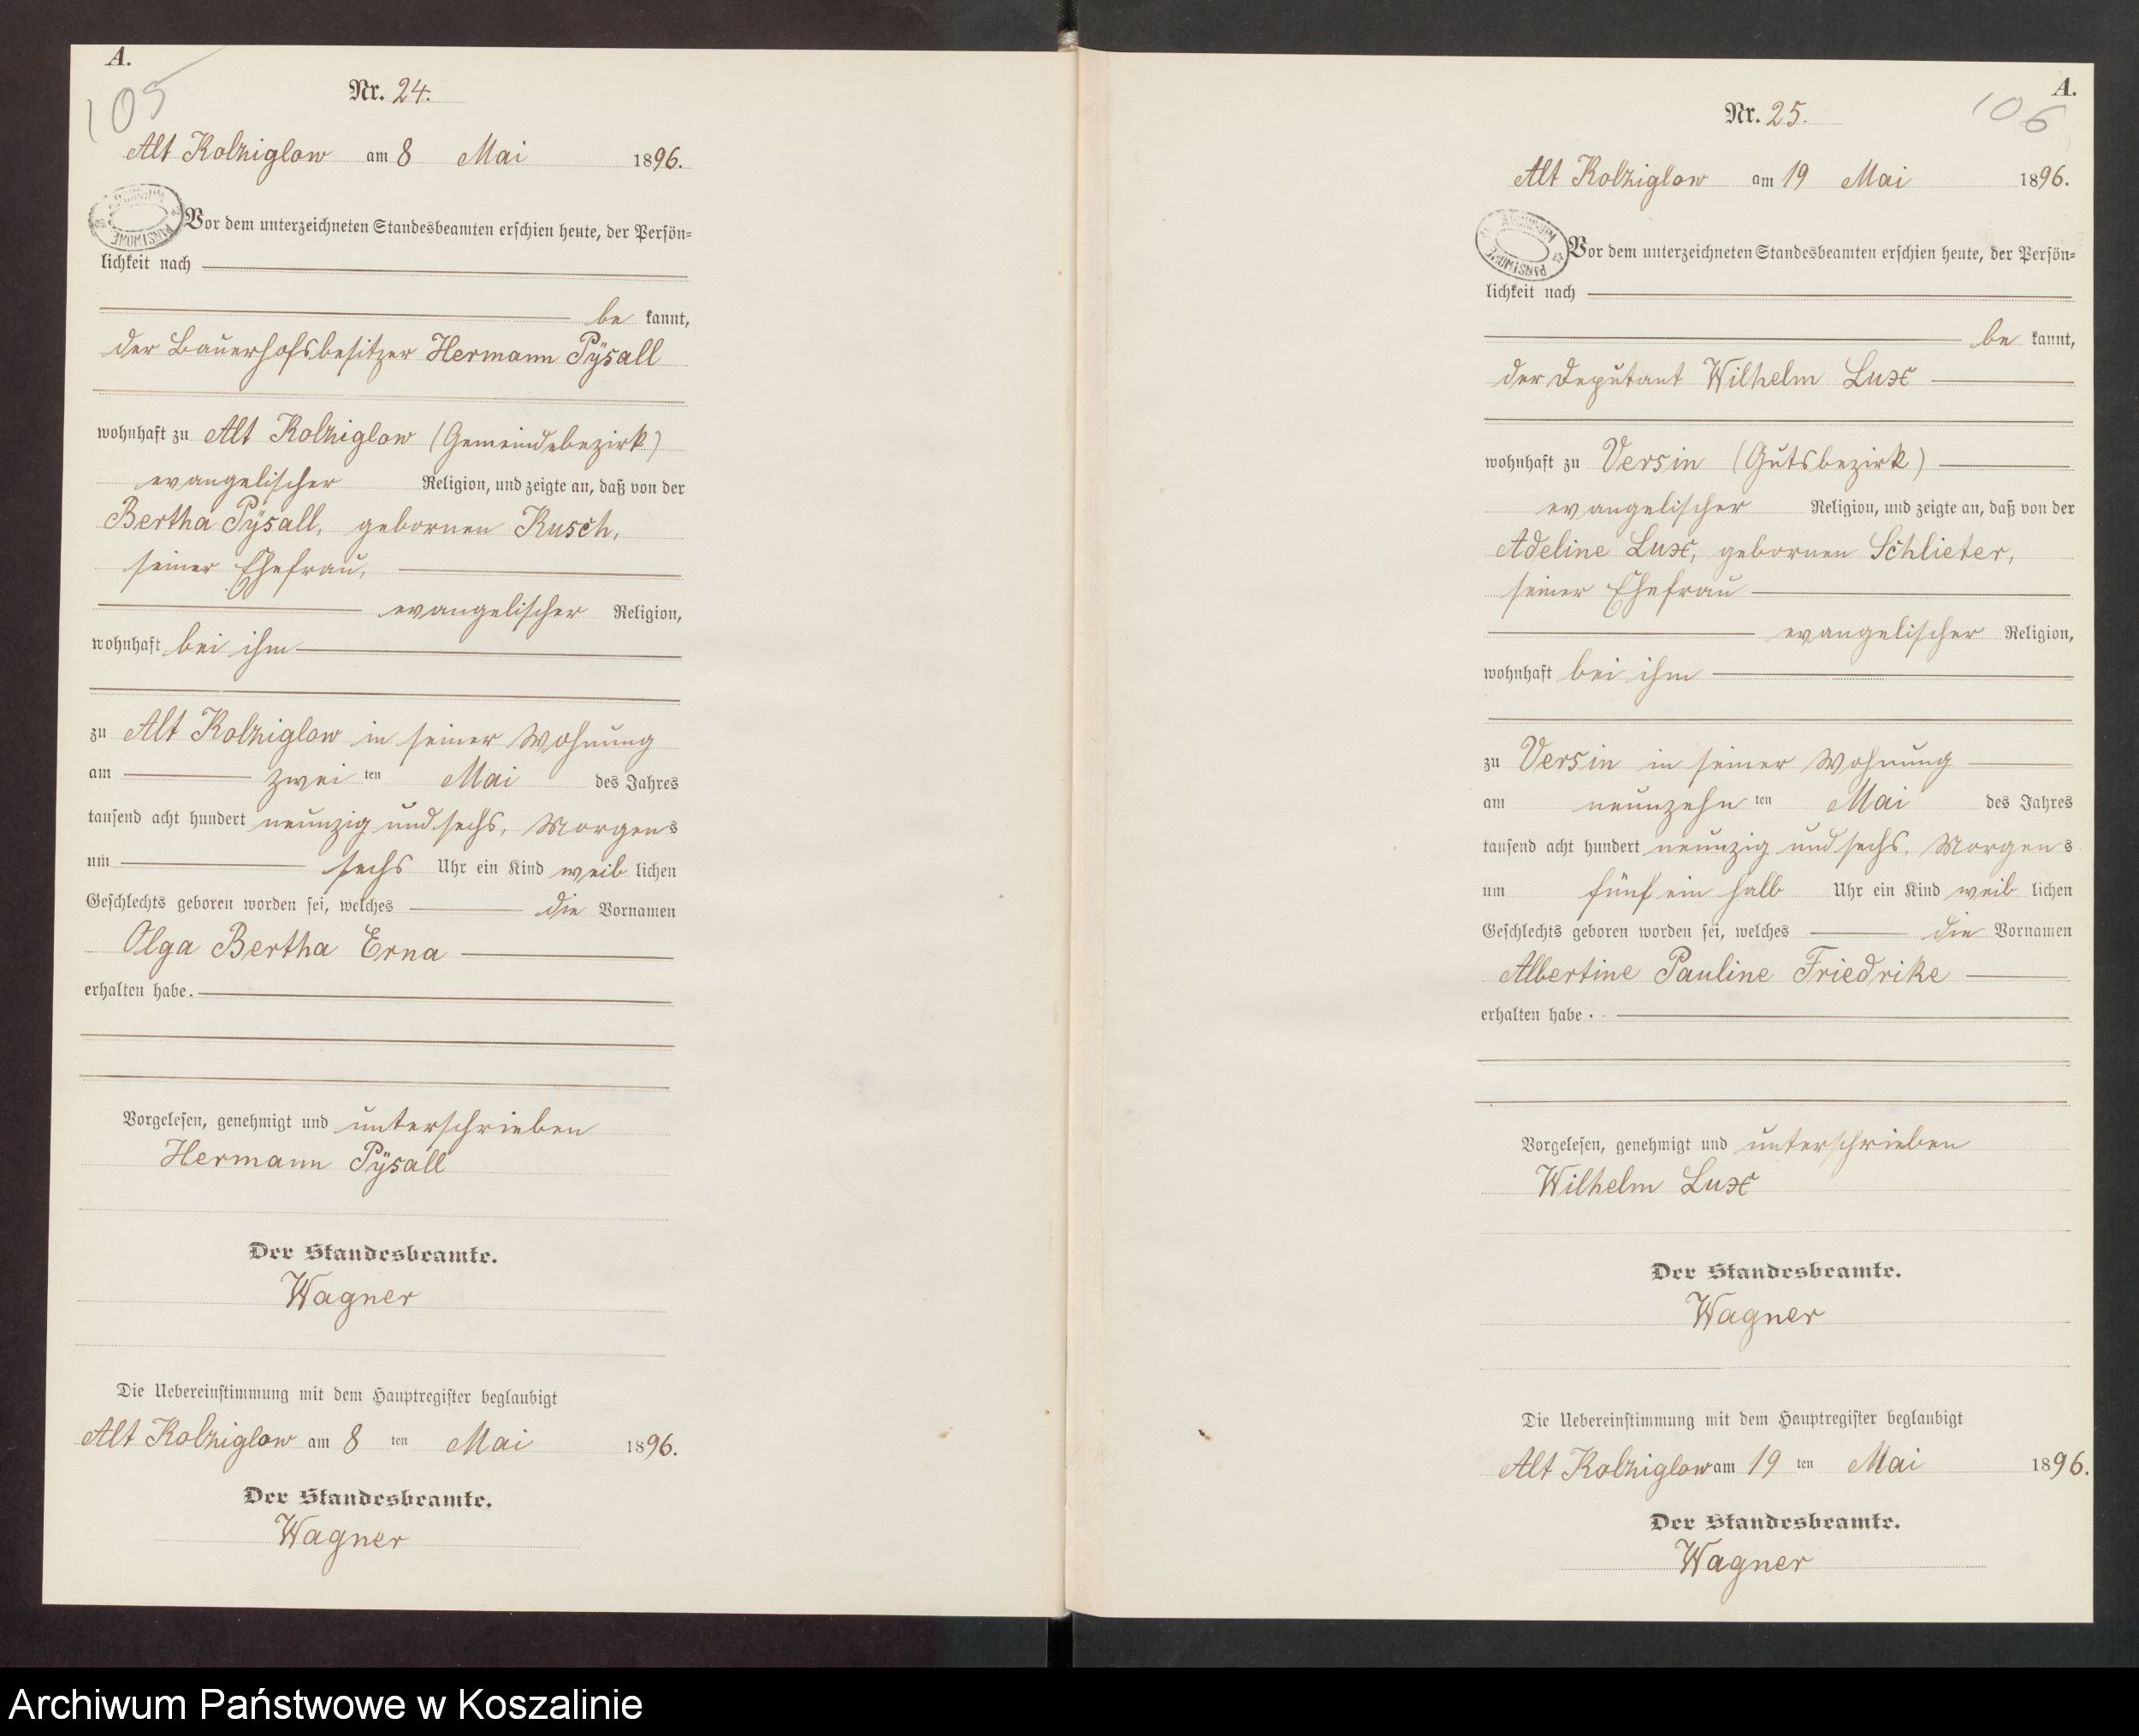 A.
105
Nr. 24.
Alt Kolziglow am 8 Mai 1896.
ARCHIWUM PAŃSTWOWE
Vor dem unterzeichneten Standesbeamten erschien heute, der Persön=
lichkeit nach
be kannt,
der Bauerhofsbesitzer Hermann Pÿsall
wohnhaft zu Alt Kolziglow (Gemeindebezirk)
evangelischer Religion, und zeigte an, daß von der
Bertha Pÿsall, gebornen Kusch,
seiner Ehefrau,
evangelischer Religion,
wohnhaft bei ihm
zu Alt Kolziglow in seiner Wohnung
am zwei ten Mai des Jahres
tausend acht hundert neunzig und sechs, Morgens
um sechs Uhr ein Kind weib lichen
Geschlechts geboren worden sei, welches die Vornamen
Olga Bertha Erna
erhalten habe.
Vorgelesen, genehmigt und unterschrieben
Hermann Pÿsall
Der Standesbeamte.
Wagner
Die Uebereinstimmung mit dem Hauptregister beglaubigt
Alt Kolziglow am 8 ten Mai 1896.
Der Standesbeamte.
Wagner
A.
106
Nr. 25.
Alt Kolziglow am 19 Mai 1896.
ARCHIWUM PAŃSTWOWE
Vor dem unterzeichneten Standesbeamten erschien heute, der Persön=
lichkeit nach
be kannt,
der Deputant Wilhelm Lux
wohnhaft zu Versin (Gutsbezirk)
evangelischer Religion, und zeigte an, daß von der
Adeline Lux, gebornen Schlieter,
seiner Ehefrau
evangelischer Religion,
wohnhaft bei ihm
zu Versin in seiner Wohnung
am neunzehn ten Mai des Jahres
tausend acht hundert neunzig und sechs, Morgens
um fünf ein halb Uhr ein Kind weib lichen
Geschlechts geboren worden sei, welches die Vornamen
Albertine Pauline Friedrike
erhalten habe.
Vorgelesen, genehmigt und unterschrieben
Wilhelm Lux
Der Standesbeamte.
Wagner
Die Uebereinstimmung mit dem Hauptregister beglaubigt
Alt Kolziglow am 19 ten Mai 1896.
Der Standesbeamte.
Wagner
Archiwum Państwowe w Koszalinie